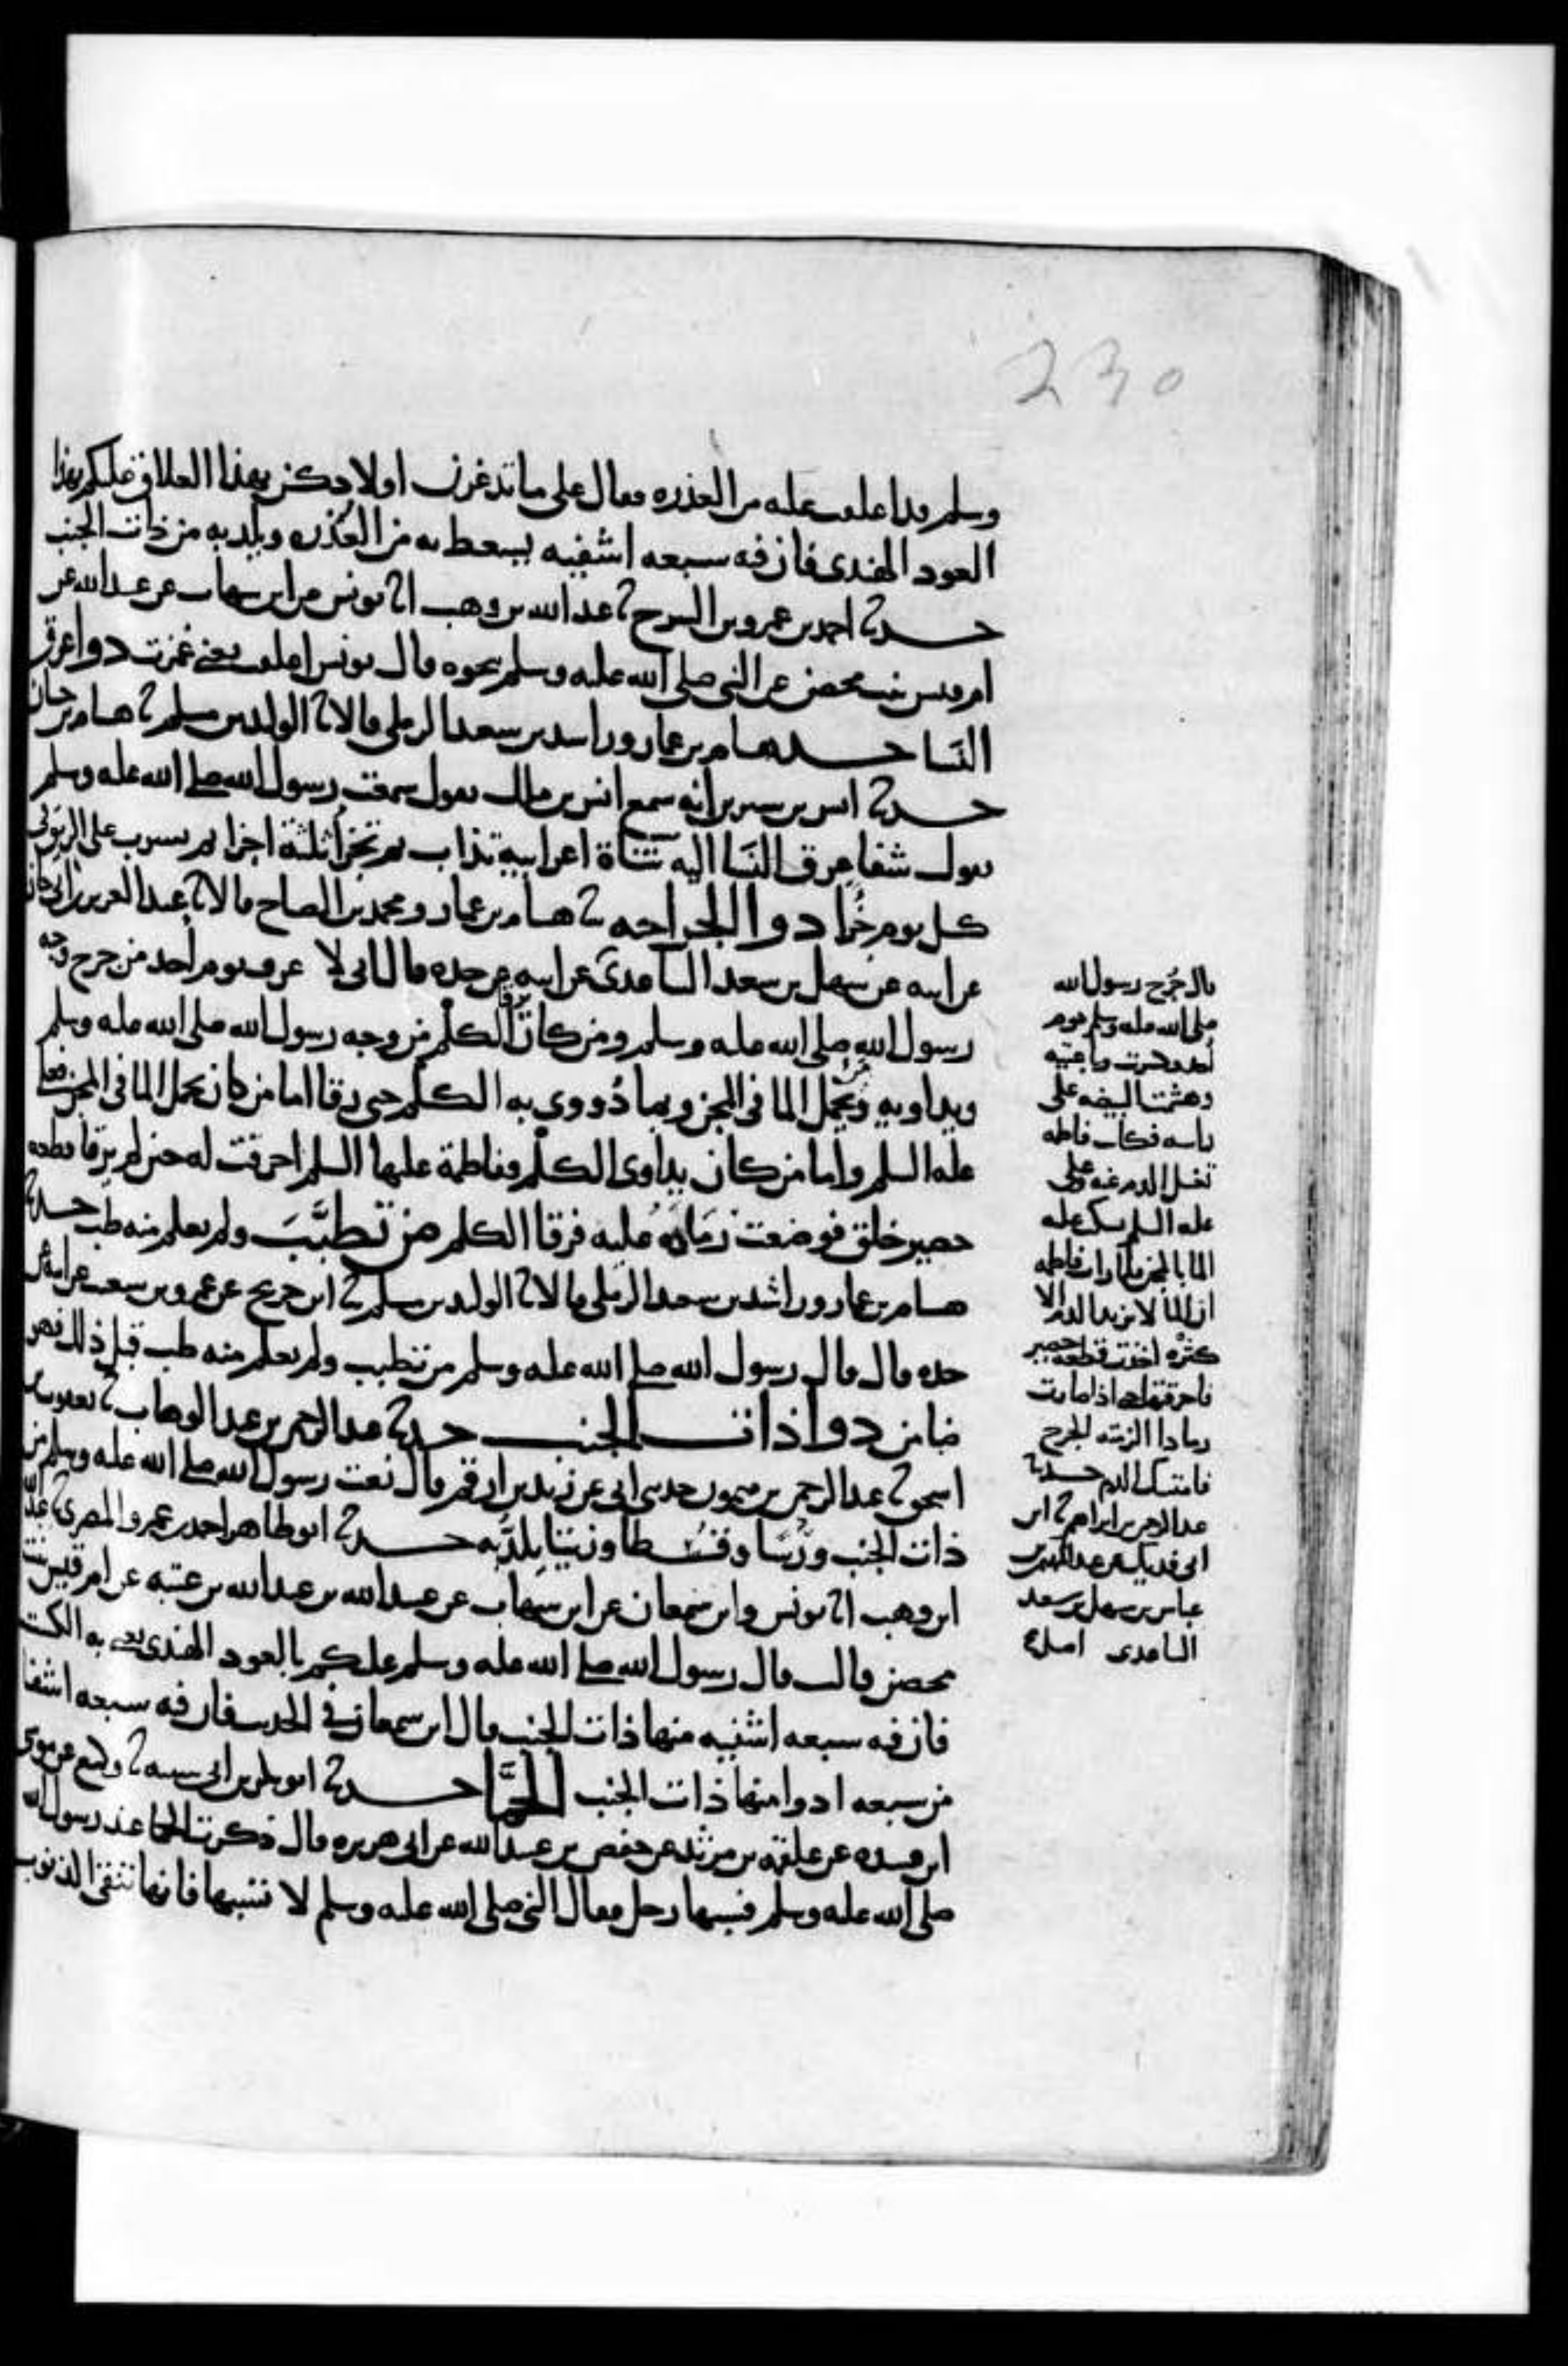 230
وسلم وقد اعلقت عليه من العذره فقال على ما تدغرن اولادكن بهذا العلاق عليكم بهذا
العود الهندى فان فيه سبعه اشفيه يسعط به من العُذره ويلد به من ذات الجنب
حدثنا احمد بن عمرو بن السرح ثنا عبد الله بن وهب انا يونس عن ابن شهاب عن عبيد الله عن
ام قيس بنت محصن عن النبى صلى الله عليه وسلم بنحوه قال يونس اعلقت يعنى غمزت دوا عرق
النَسا حدثنا هشام بن عمار وراشد بن سعيد الرملى قالا ثنا الوليد بن مسلم ثنا هشام بن حسان
حدثنا انس بن سيرين انه سمع انس بن مالك يقول سمعت رسول الله صلى الله عليه وسلم
يقول شفا عرق النَسا اليه شاة اعرابية تذاب ثم تجزأ ثلثة اجزا ثم يشرب على الريق فى
كل يوم جُزا دوا الجراحه ثنا هشام بن عمار ومحمد بن الصباح قالا ثنا عبد العزيز بن ابى حازم
عن ابيه عن سهل بن سعد الساعدى عن ابيه عن جده قال انى لا عرف يوم احد من جرح وجه
رسول الله صلى الله عليه وسلم ومن كان يرقى الكلْم من وجه رسول الله صلى الله عليه وسلم
ويداويه ومن يَحْمِل الما فى المجن وبما دُووى به الكلْم حتى رقا اما من كان يحمل الما فى المجن فعلى
عليه السلم واما من كان يداوى الكلْم ففاطمة عليها السلم احرقت له حين لم يرقا قطعه
حصير خلق فوضعت رَمادَهُ عليه فرقا الكلم من تطبَّبَ ولم يعلم منه طب حدثنا
هشام بن عمار وراشد بن سعيد الرملى قالا ثنا الوليد بن مسلم ثنا ابن جريج عن عمرو بن شعيب عن ابيه عن
جده قال قال رسول الله صلى الله عليه وسلم من تطبب ولم يعلم منه طب قبل ذلك فهو
ضامن دوا ذات الجنب حدثنا عبد الرحمن بن عبد الوهاب ثنا يعقوب بن
اسحق ثنا عبد الرحمن بن ميمون حدثنى ابى عن زيد بن ارقم قال نعت رسول الله صلى الله عليه وسلم من
ذات الجنب وَرْسًا وقُسْطا وزيتا يُلَدُّ به حدثنا ابو طاهر احمد بن عمرو المصرى ثنا عبد الله
ابن وهب انا يونس وابن سمعان عن ابن شهاب عن عبيد الله بن عبد الله بن عتبه عن ام قيس بنت
محصن قالت قال رسول الله صلى الله عليه وسلم عليكم بالعود الهندى يعنى به الكست
فان فيه سبعه اشفيه منها ذات الجنب قال ابن سمعان فى الحديث فان فيه سبعه اشفا
من سبعه ادوا منها ذات الجنب الحمَّا حدثنا ابو بكر بن ابى شيبه ثنا وكيع عن موسى
ابن عبيده عن علقمه بن مرثد عن حفص بن عبيد الله عن ابى هريره قال ذكرت الحما عند رسول الله
صلى الله عليه وسلم فسبها رجل فقال النبى صلى الله عليه وسلم لا تسبها فانها تنفى الذنوب
قال جُرح رسول الله
صلى الله عليه وسلم يوم
احد وكسرت رباعيته
وهشمت البيضه على
راسه فكانت فاطمه
تغسل الدم عنه وعلى
عليه السلم يسكب عليه
الما بالمجن فلما رات فاطمه
ان الما لا يزيد الدم الا
كثره اخذت قطعه حصير
فاحرقتها حتى اذا صارت
رمادا الزمته الجرح
فاستمسك الدم حدثنا
عبد الرحمن بن ابراهيم ثنا ابن
ابى فديك عن عبد المهيمن بن
عباس بن سهل بن سعد
الساعدى اصل